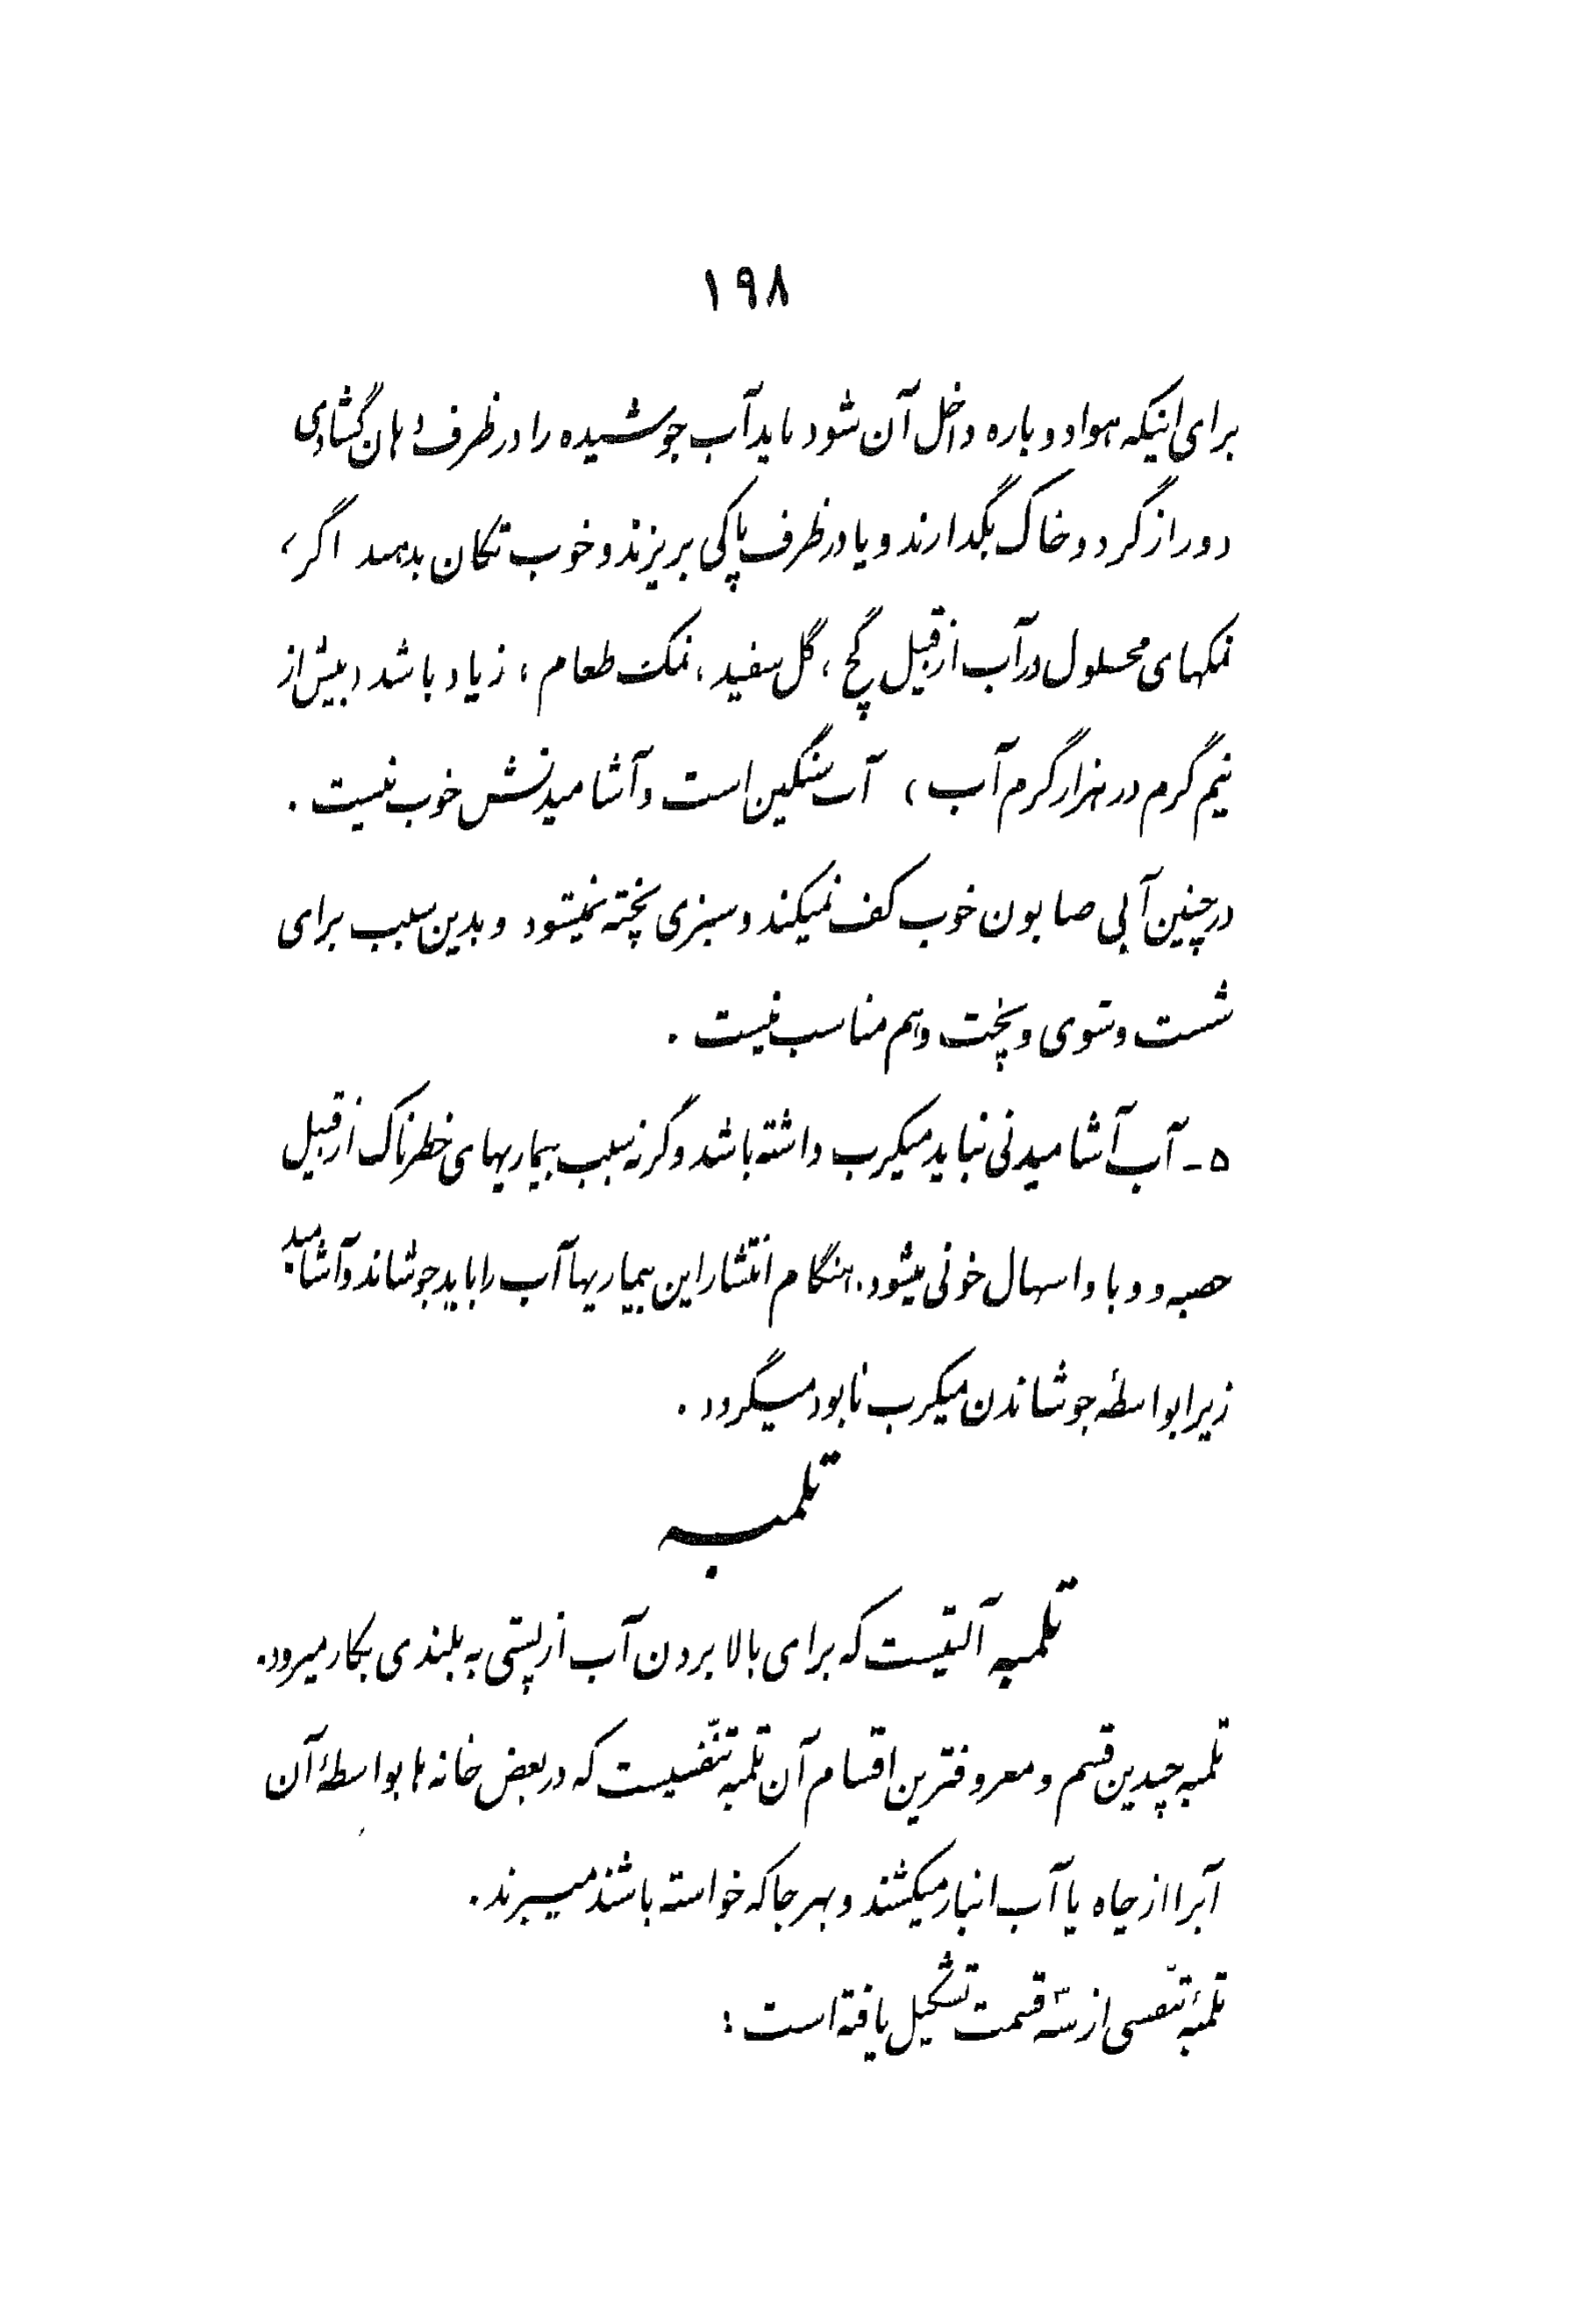 ۱۹۸
برای اینکه هوا دوباره داخل آن شود باید آب جوشیده را در ظرف دهان گشادی
دور از گرد و خاک بگذارند و یا در ظرف پاکی بریزند و خوب تکان بدهند اگر
نمکهای محلول در آب از قبیل گچ، گل سفید، نمک طعام، زیاد باشد (بیش از
نیم گرم در هزار گرم آب) آب سنگین است و آشامیدنش خوب نیست.
در چنین آبی صابون خوب کف نمیکند و سبزی پخته نمیشود و بدین سبب برای
شست و شوی و پخت و هم مناسب نیست.
۵- آب آشامیدنی نباید میکرب داشته باشد و گرنه سبب بیماریهای خطرناک از قبیل
حصبه و وبا و اسهال خونی میشود. هنگام انتشار این بیماریها آب را باید جوشاند و آشامید
زیرا بواسطهٔ جوشاندن میکرب نابود میگردد.
تلمبه
تلمبه آلتیست که برای بالا بردن آب از پستی به بلندی بکار میرود.
تلمبه چندین قسم و معروفترین اقسام آن تلمبه تنفّسیست که در بعض خانه ها بواسطهٔ آن
آبرا از چاه یا آب انبار میکشند و بهر جا که خواسته باشند میبرند.
تلمبهٔ تنفّسی از سه قسمت تشکیل یافته است: